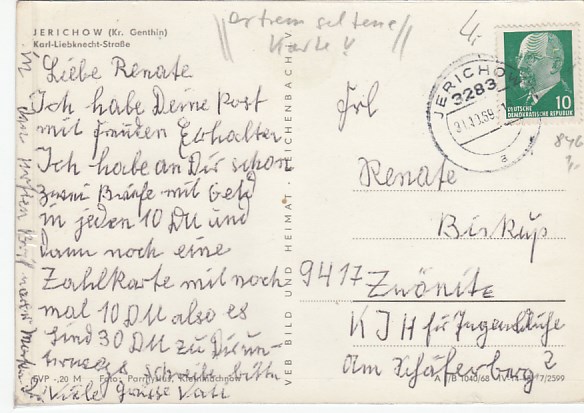 JERICHOW (Kr. Genthin)
Karl-Liebknecht-Straße
extrem seltene
Karte!
Liebe Renate
Ich habe Deine Post
mit freuden Erhalten
Ich habe an Dir schon
zwei Briefe mit Geld
in jeden 10 DM und
dann noch eine
Zahlkarte mit noch
mal 10 DM also es
sind 30 DM zu Dir un-
terwegs schreibe bitte
Viele Grüße Vati
in
Brief
EVP -,20 M Foto:
VEB BILD UND HEIMAT · REICHENBACH i. V.
A
B 1040/68 IV-14-
7/2599
JERICHOW
3283
a
DEUTSCHE
DEMOKRATISCHE REPUBLIK
10
Frl
Renate
Biskup
9417 Zwönitz
KJH für Jugendliche
Am Schäferberg 2